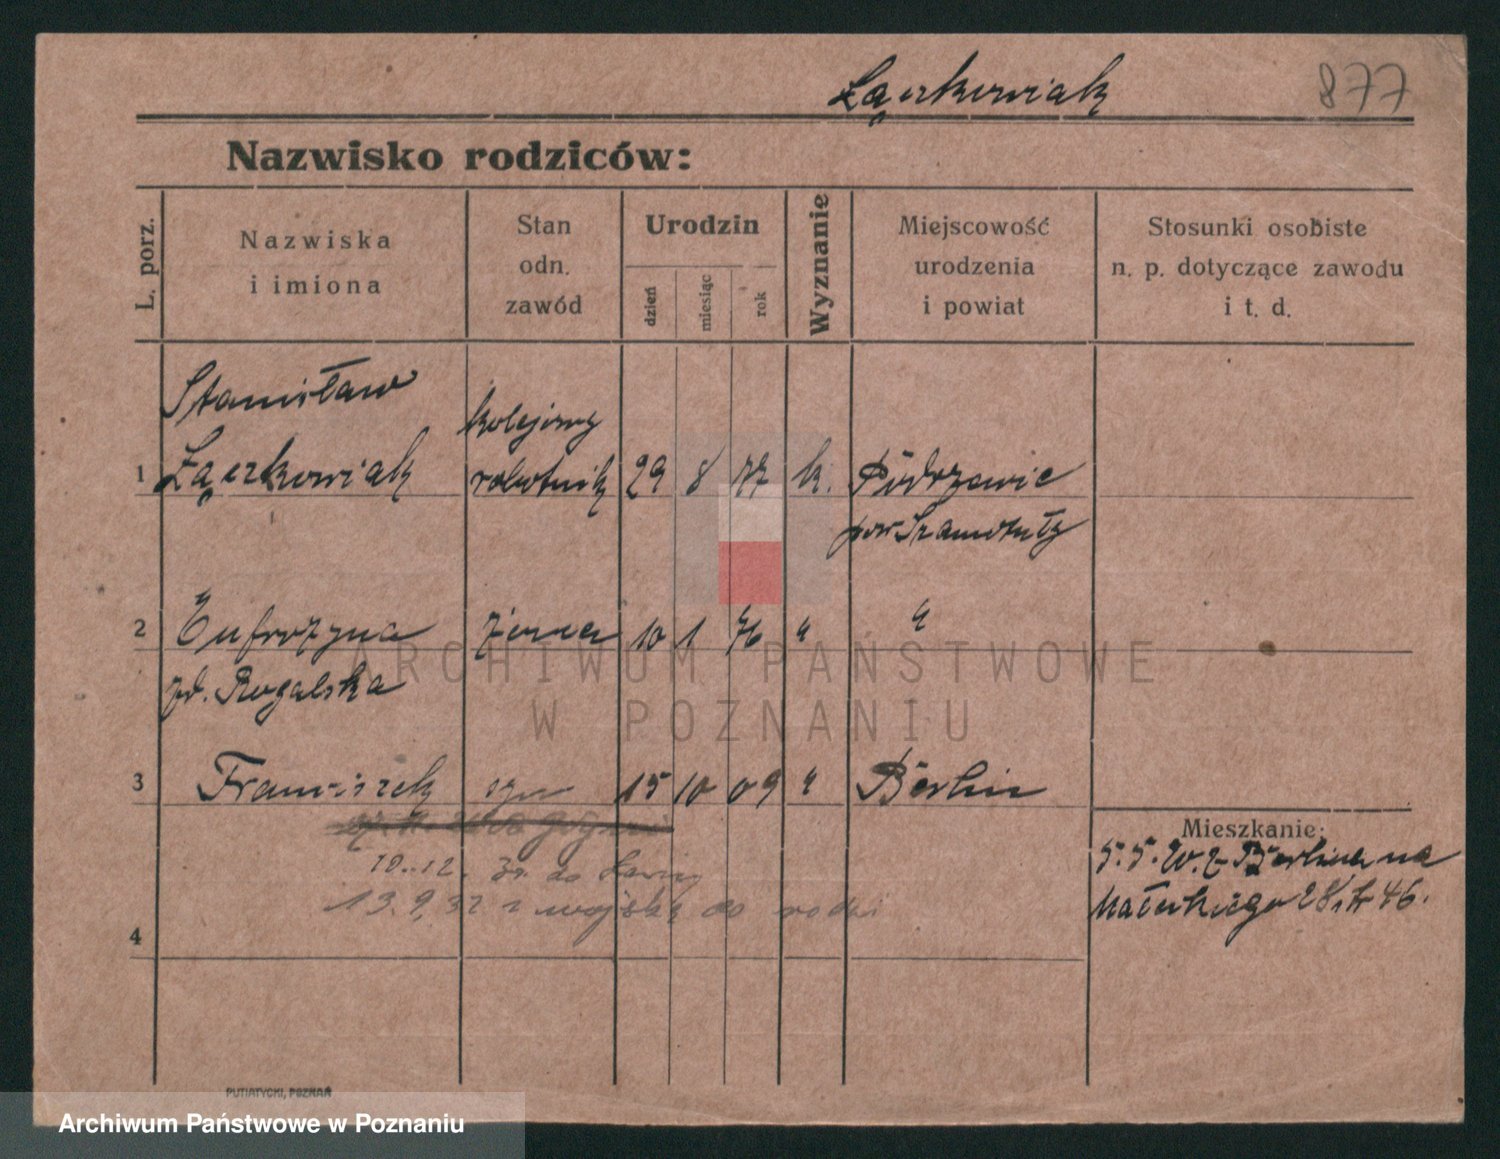 Łączkowiak 877
Nazwisko rodziców:
L. porz.
Nazwiska
i imiona
Stan
odn.
zawód
Urodzin
dzień
miesiąc
rok
Wyznanie
Miejscowość
urodzenia
i powiat
Stosunki osobiste
n. p. dotyczące zawodu
i t. d.
Stanisław
kolejowy
1 Łączkowiak robotnik 29 8 77 k. Podrzewie
pow Szamotuły
2 Eufrozyna żona 10 1 76 " "
zd. Rogalska
3 Franciszek syn 15 10 09 " Berlin
Mieszkanie:
10.12. 31. do
13.9.32 z wojska do rodzi
5.5. 20. z Berlina na
Małeckiego 28, 46.
4
ARCHIWUM PAŃSTWOWE
W POZNANIU
PUTIATYCKI, POZNAŃ
Archiwum Państwowe w Poznaniu